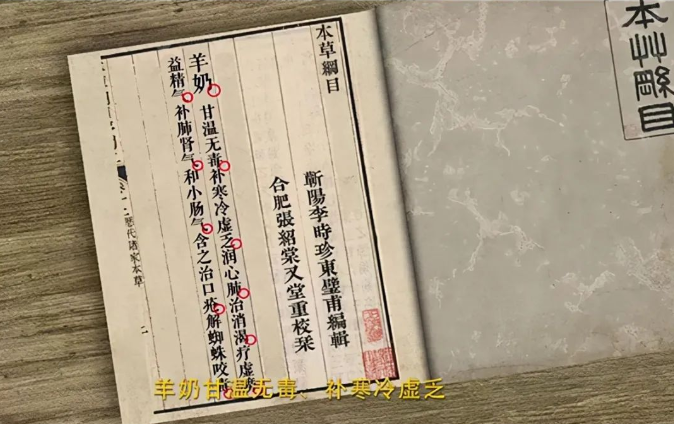 本艸縣目
本草綱目
蘄陽李時珍東璧甫編輯
合肥張紹棠又堂重校栞
羊奶
甘温无毒补寒冷虚乏润心肺治消渴疗虚
益精气补肺肾气和小肠气含之治口疮解蜘蛛咬
歷代諸家本草
二
羊奶甘温无毒、补寒冷虚乏